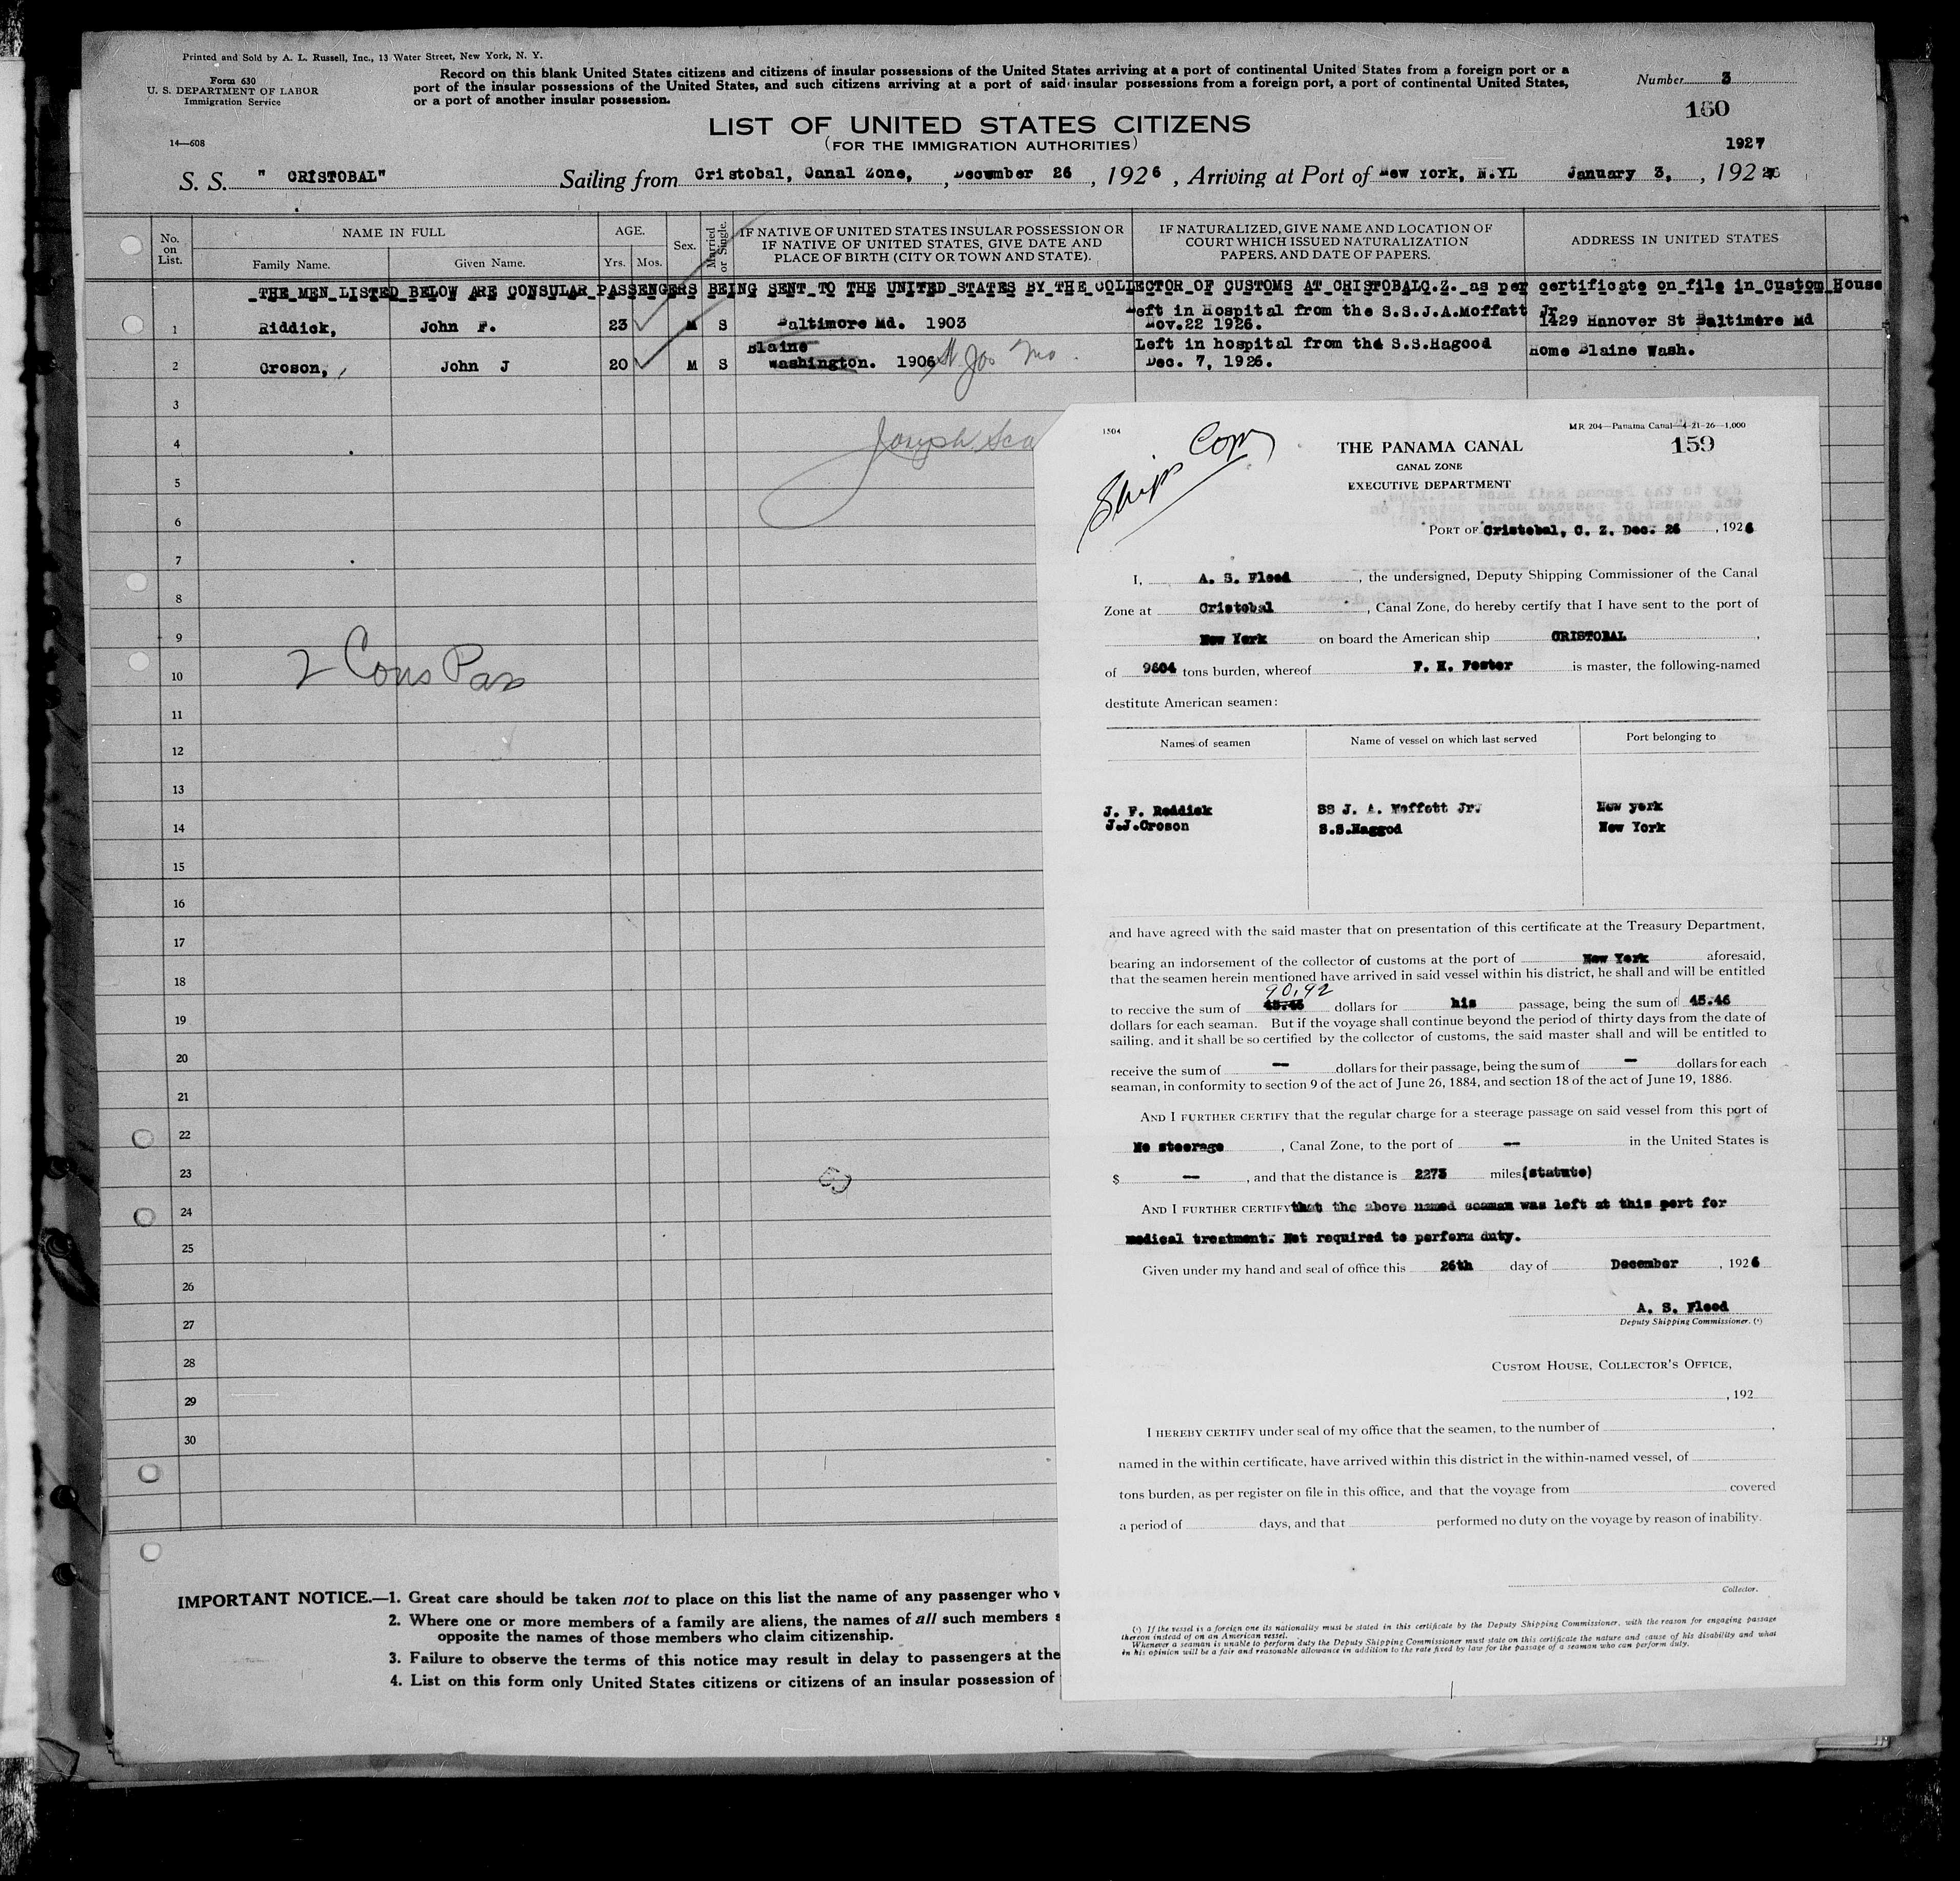 Printed and Sold by A. L. Russell, Inc., 13 Water Street, New York, N. Y.
Form 630
U. S. DEPARTMENT OF LABOR
Immigration Service
14—608
Record on this blank United States citizens and citizens of insular possessions of the United States arriving at a port of continental United States from a foreign port or a
port of the insular possessions of the United States, and such citizens arriving at a port of said insular possessions from a foreign port, a port of continental United States,
or a port of another insular possession.
Number 3
160
LIST OF UNITED STATES CITIZENS
(FOR THE IMMIGRATION AUTHORITIES)
1927
S. S. " CRISTOBAL" Sailing from Cristobal, Canal Zone, , December 26 , 1926 , Arriving at Port of New York, N.YL January 3, , 192
No. on List.
NAME IN FULL
Family Name.
Given Name.
AGE.
Yrs.
Mos.
Sex.
Married or Single.
IF NATIVE OF UNITED STATES INSULAR POSSESSION OR
IF NATIVE OF UNITED STATES, GIVE DATE AND
PLACE OF BIRTH (CITY OR TOWN AND STATE).
IF NATURALIZED, GIVE NAME AND LOCATION OF
COURT WHICH ISSUED NATURALIZATION
PAPERS, AND DATE OF PAPERS.
ADDRESS IN UNITED STATES
THE MEN LISTED BELOW ARE CONSULAR PASSENGERS BEING SENT TO THE UNITED STATES BY THE COLLECTOR OF CUSTOMS AT CRISTOBALC.Z. as per certificate on file in Custom House
1 Riddick, John F. 23 M S Baltimore Md. 1903 Left in Hospital from the S.S.J.A.Moffatt Jr
Nov.22 1926. 1429 Hanover St Baltimore Md
Blaine
2 Croson, John J 20 M S Washington. 1906 St Jos Mo. Left in hospital from the S.S.Hagood
Dec. 7, 1926. Home Blaine Wash.
3
4
Joseph
5
6
7
8
9
10
2 Cons Pas
11
12
13
14
15
16
17
18
19
20
21
22
23
24
25
26
27
28
29
30
IMPORTANT NOTICE.—1. Great care should be taken not to place on this list the name of any passenger who
2. Where one or more members of a family are aliens, the names of all such members
opposite the names of those members who claim citizenship.
3. Failure to observe the terms of this notice may result in delay to passengers at the
4. List on this form only United States citizens or citizens of an insular possession of
1504
Ships Com
MR 204—Panama Canal—4-21-26—1,000
159
THE PANAMA CANAL
CANAL ZONE
EXECUTIVE DEPARTMENT
PORT OF Cristobal, C. Z. Dec. 26 , 1926
I, A. S. Flood , the undersigned, Deputy Shipping Commissioner of the Canal
Zone at Cristobal , Canal Zone, do hereby certify that I have sent to the port of
New York on board the American ship CRISTOBAL ,
of 9604 tons burden, whereof F. H. Foster is master, the following-named
destitute American seamen:
Names of seamen
Name of vessel on which last served
Port belonging to
J. F. Reddick SS J. A. Moffott Jr. New york
J.J.Croson S.S.Haggod New York
and have agreed with the said master that on presentation of this certificate at the Treasury Department,
bearing an indorsement of the collector of customs at the port of New York aforesaid,
that the seamen herein mentioned have arrived in said vessel within his district, he shall and will be entitled
90,92
to receive the sum of 45.46 dollars for his passage, being the sum of 45.46
dollars for each seaman. But if the voyage shall continue beyond the period of thirty days from the date of
sailing, and it shall be so certified by the collector of customs, the said master shall and will be entitled to
receive the sum of — dollars for their passage, being the sum of — dollars for each
seaman, in conformity to section 9 of the act of June 26, 1884, and section 18 of the act of June 19, 1886.
AND I FURTHER CERTIFY that the regular charge for a steerage passage on said vessel from this port of
No steerage , Canal Zone, to the port of — in the United States is
$ — , and that the distance is 2273 miles(statute)
AND I FURTHER CERTIFY that the above named seaman was left at this port for
medical treatment. Not required to perform duty.
Given under my hand and seal of office this 26th day of December , 1926
A. S. Flood
Deputy Shipping Commissioner. (¹)
CUSTOM HOUSE, COLLECTOR'S OFFICE,
, 192
I HEREBY CERTIFY under seal of my office that the seamen, to the number of ,
named in the within certificate, have arrived within this district in the within-named vessel, of
tons burden, as per register on file in this office, and that the voyage from covered
a period of days, and that performed no duty on the voyage by reason of inability.
Collector.
(¹) If the vessel is a foreign one its nationality must be stated in this certificate by the Deputy Shipping Commissioner, with the reason for engaging passage
thereon instead of on an American vessel.
Whenever a seaman is unable to perform duty the Deputy Shipping Commissioner must state on this certificate the nature and cause of his disability and what
in his opinion will be a fair and reasonable allowance in addition to the rate fixed by law for the passage of a seaman who can perform duty.